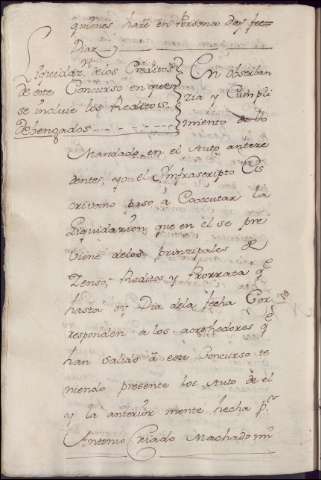 quienes hare en Persona de
Diaz
Liquidazn. de los Creditos
de este Concurso en quen
se incluie los Reditos
Debengados
En obserban
zia y Cumpli
miento de lo
Mandado, en el Auto antere
dente, yo el Ynfrascripto Es
crivano paso à Executar la
Liquidazion que en el se pre
viene delos principales de
Zenso, Reditos y Prorrata qe
hasta oy Dia dela fecha Cor
responden à los acrehedores qe
han salido à este Concurso te
niendo presente los Auto de el
y la anterior mente hecha pr.
Antonio Criado Machado mi